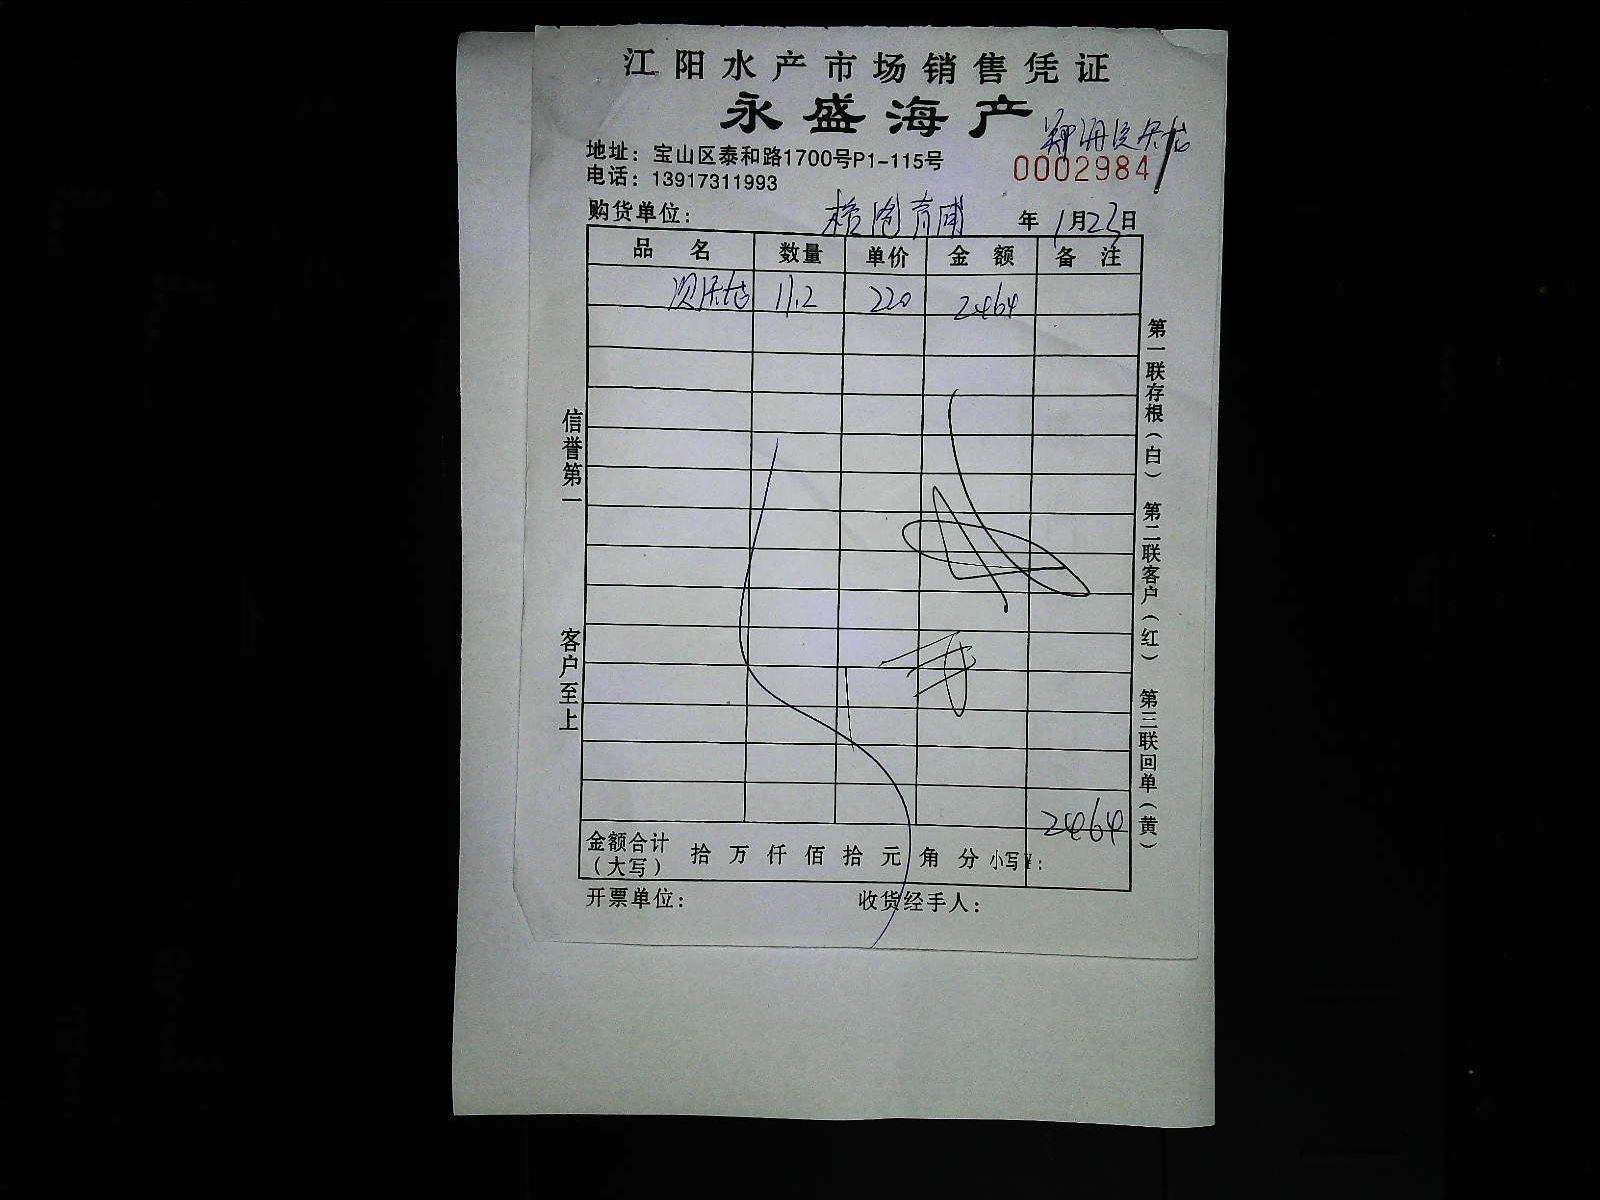 江阳水产市场销售凭证
永盛海产
地址：宝山区泰和路1700号P1-115号
0002984
电话：13917311993
购货单位： 年 1月23日
品名 数量 单价 金额 备注
11.2 220 2464
信誉第一 客户至上
第一联存根（白） 第二联客户（红） 第三联回单（黄）
2464
金额合计（大写） 拾 万 仟 佰 拾 元 角 分 小写¥：
开票单位： 收货经手人：